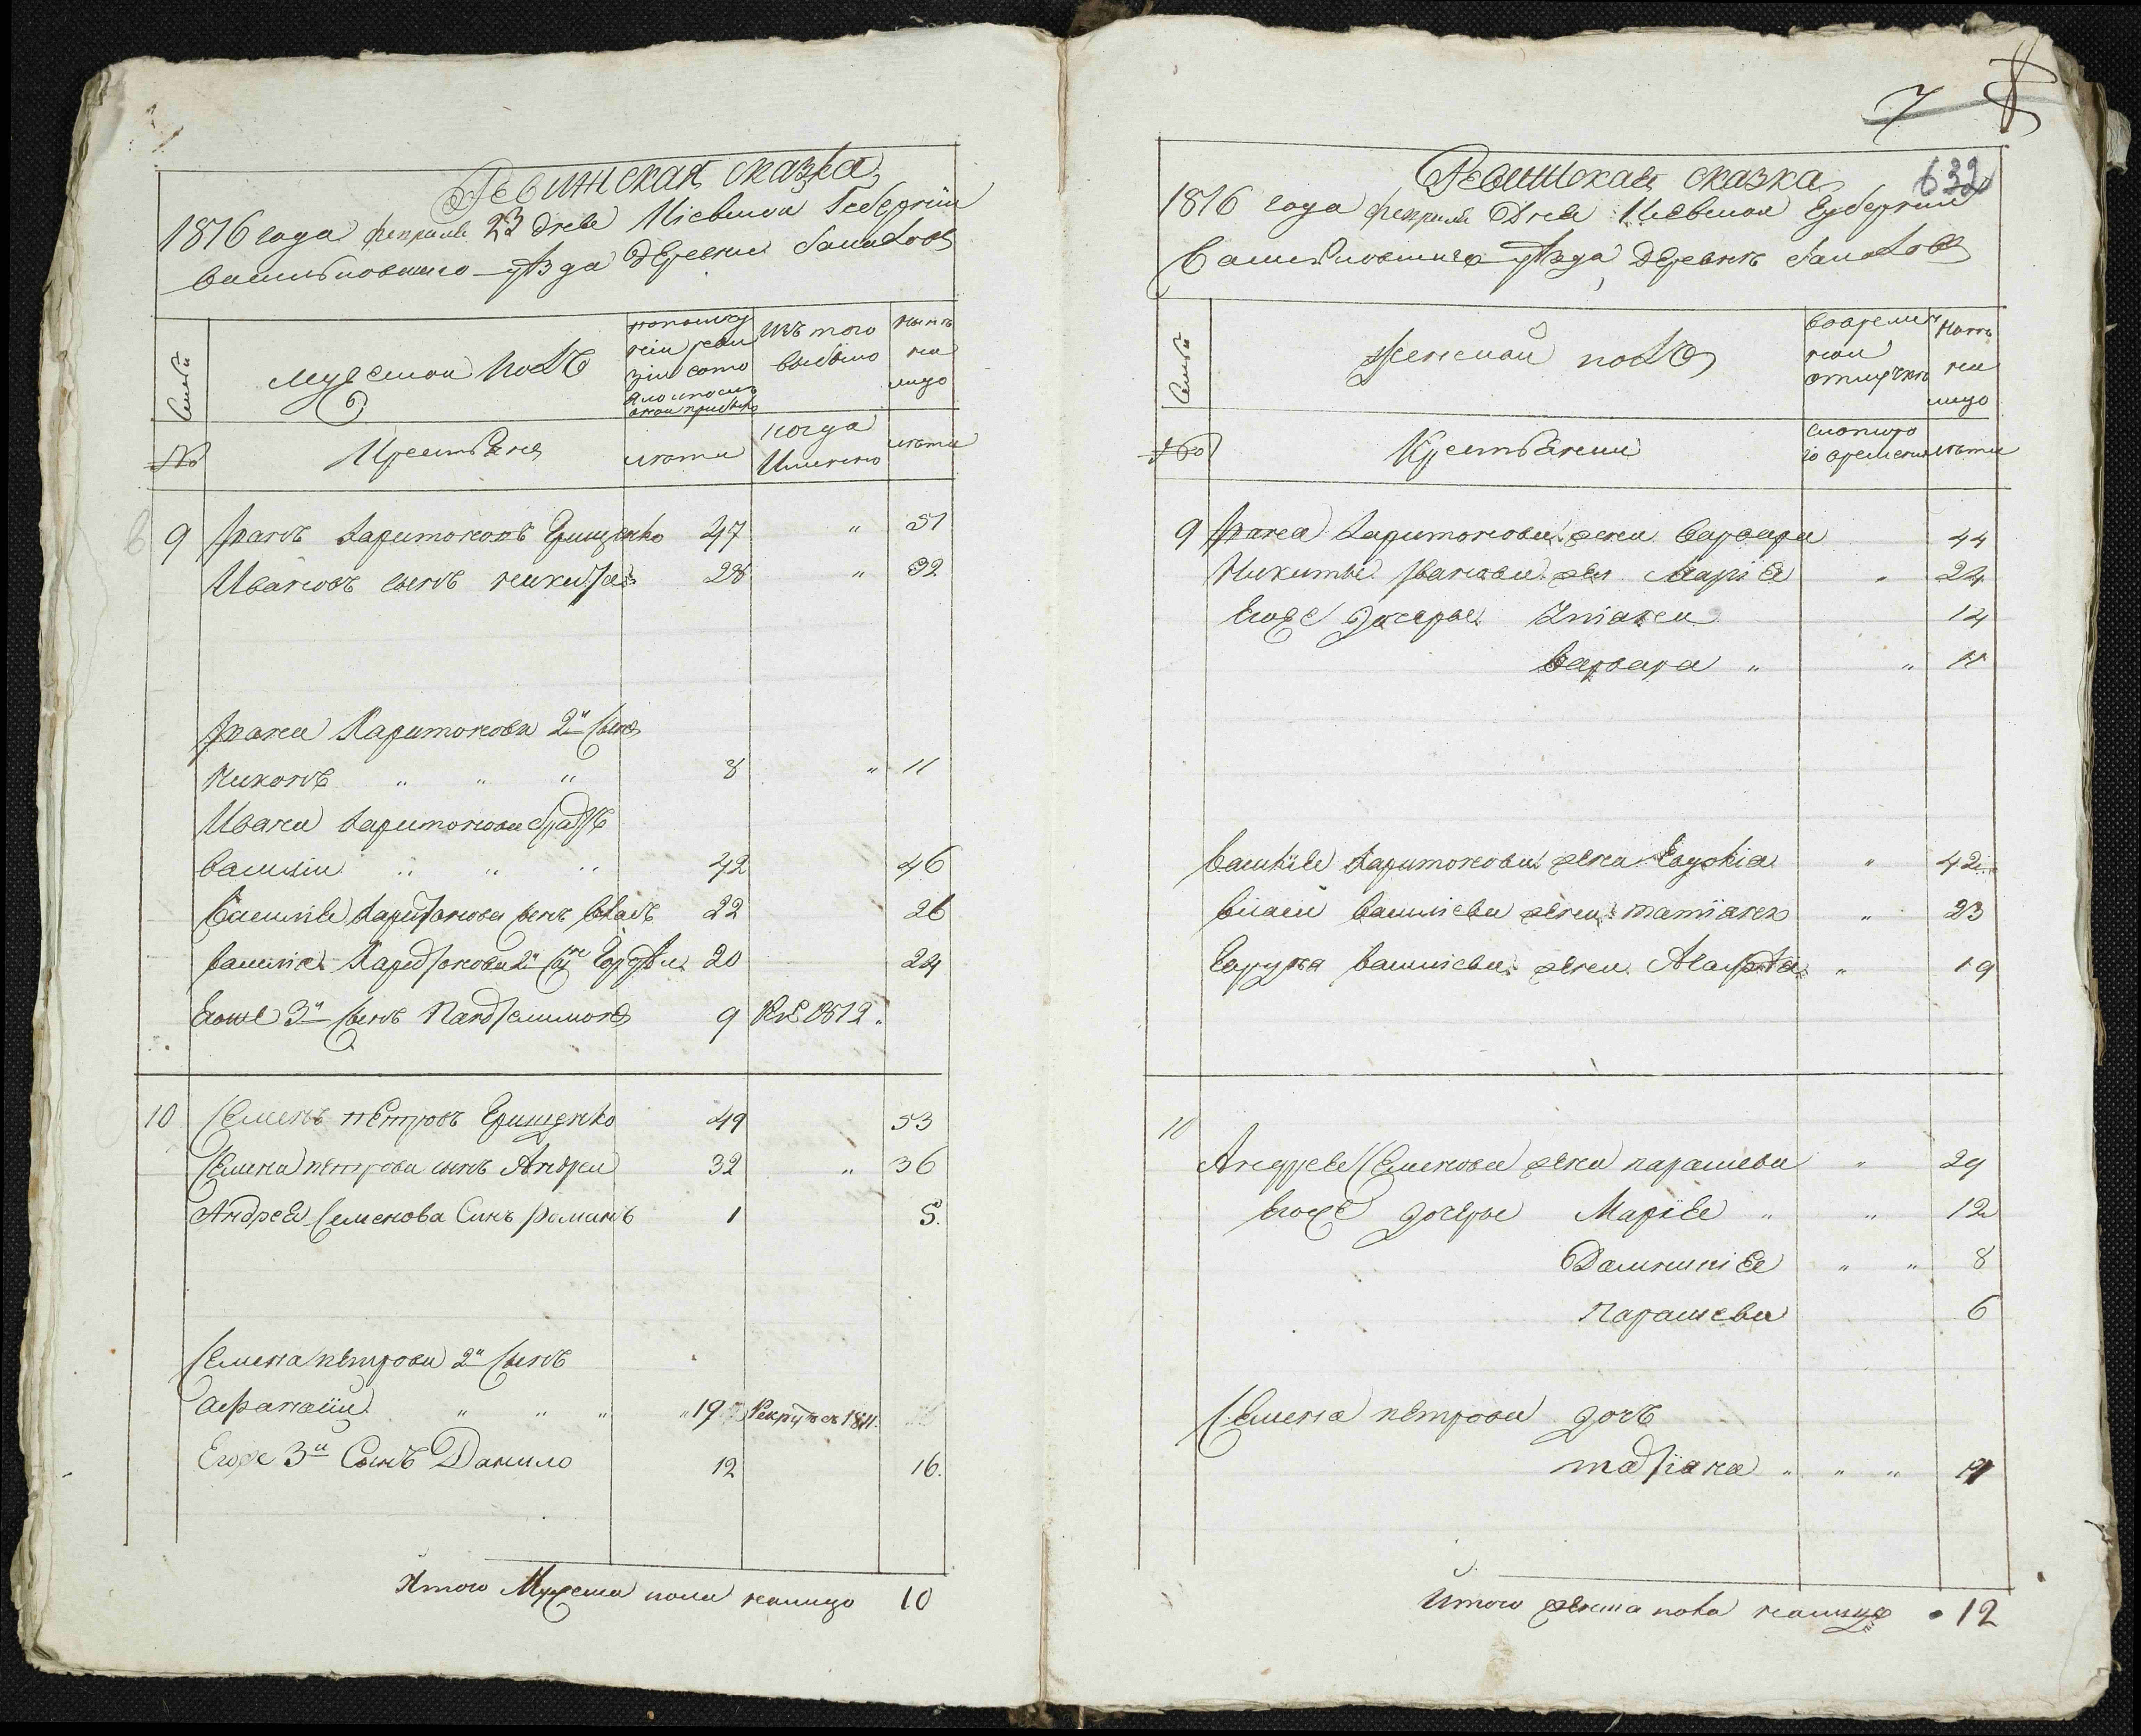 Ревижская сказка
1816 года февраля 23 дня Кіевской Губерніи
васильковшого уѣзда деревни
Семьи
мужеской полъ
по последней ревизіи состояло и после оной прибыло
изъ того выбыло
ныне на лицо
№
Крестьяне
лѣта
когда Именно
лѣта
9 Иванъ Харитоновъ Грищенко 47 " 51
Ивановъ сынъ никита 28 " 32
Ивана Харитонова 2й сынъ
Никонъ " " " 8 " 11
Ивана харитонова братъ
василій " " " 42 46
василія Харитонова сынъ власъ 22 26
василія Харитонова 2й сынъ 20 24
Егоже 3й сынъ Пантелимонъ 9 1812
10 Семенъ петровъ Грищенко 49 53
Семена петрова сынъ Андрей 32 " 36
Андрея Семенова Синъ романъ 1 5.
Семена петрова 2й сынъ
афанасій " " " " 19 Рекрутъ съ 1811.
Егоже 3й Сынъ Данило 12 16.
Итого Мужеска пола налицо 10
7 8
632
Ревижская сказка
1816 года февраля Дня Кіевской Губерніи
Васильковшого уѣзда деревнѣ
Семьи
Женской полъ
во временной отлучкѣ
ныне на лицо
№
Крестьянки
с которого времени
лѣта
9 Ивана Харитонова жена варвара 44
Никиты Иванова жена Марія " 24
Егоже дочеры Уліана 14
варвара " " 11
василія Харитонова жена Евдокія " 42
власа василіева жена татіана " 23
василіева жена " 19
10
Андрея Семенова жена парасцева " 29
Егоже дочеры Марія " " 12
Домникія " " 8
Парасцева 6
Семена петрова дочь
татіана " " "
Итого женска пола налицо 12